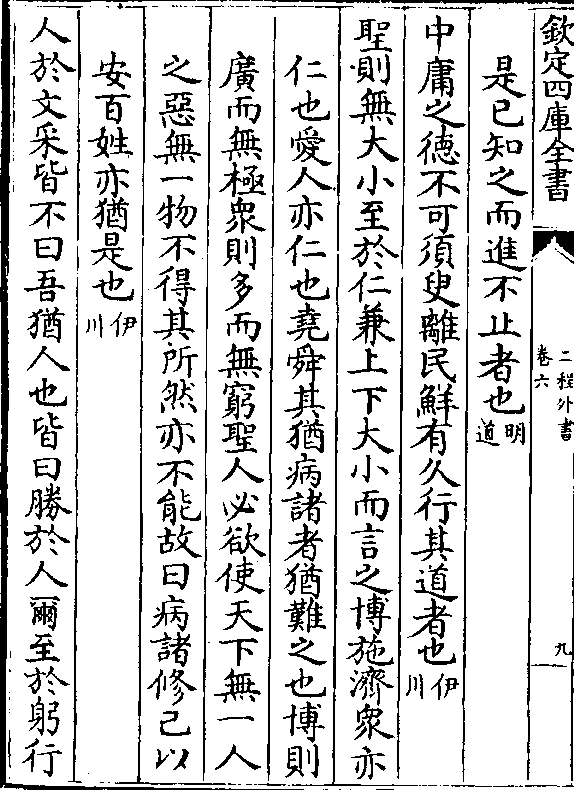 欽定四庫全書
二程外書
卷六
九
是已知之而進不止者也明道
中庸之德不可須臾離民鮮有久行其道者也伊川
聖則無大小至於仁兼上下大小而言之博施濟衆亦
仁也愛人亦仁也堯舜其猶病諸者猶難之也博則
廣而無極衆則多而無窮聖人必欲使天下無一人
之惡無一物不得其所然亦不能故曰病諸修己以
安百姓亦猶是也伊川
人於文采皆不曰吾猶人也皆曰勝於人爾至於躬行